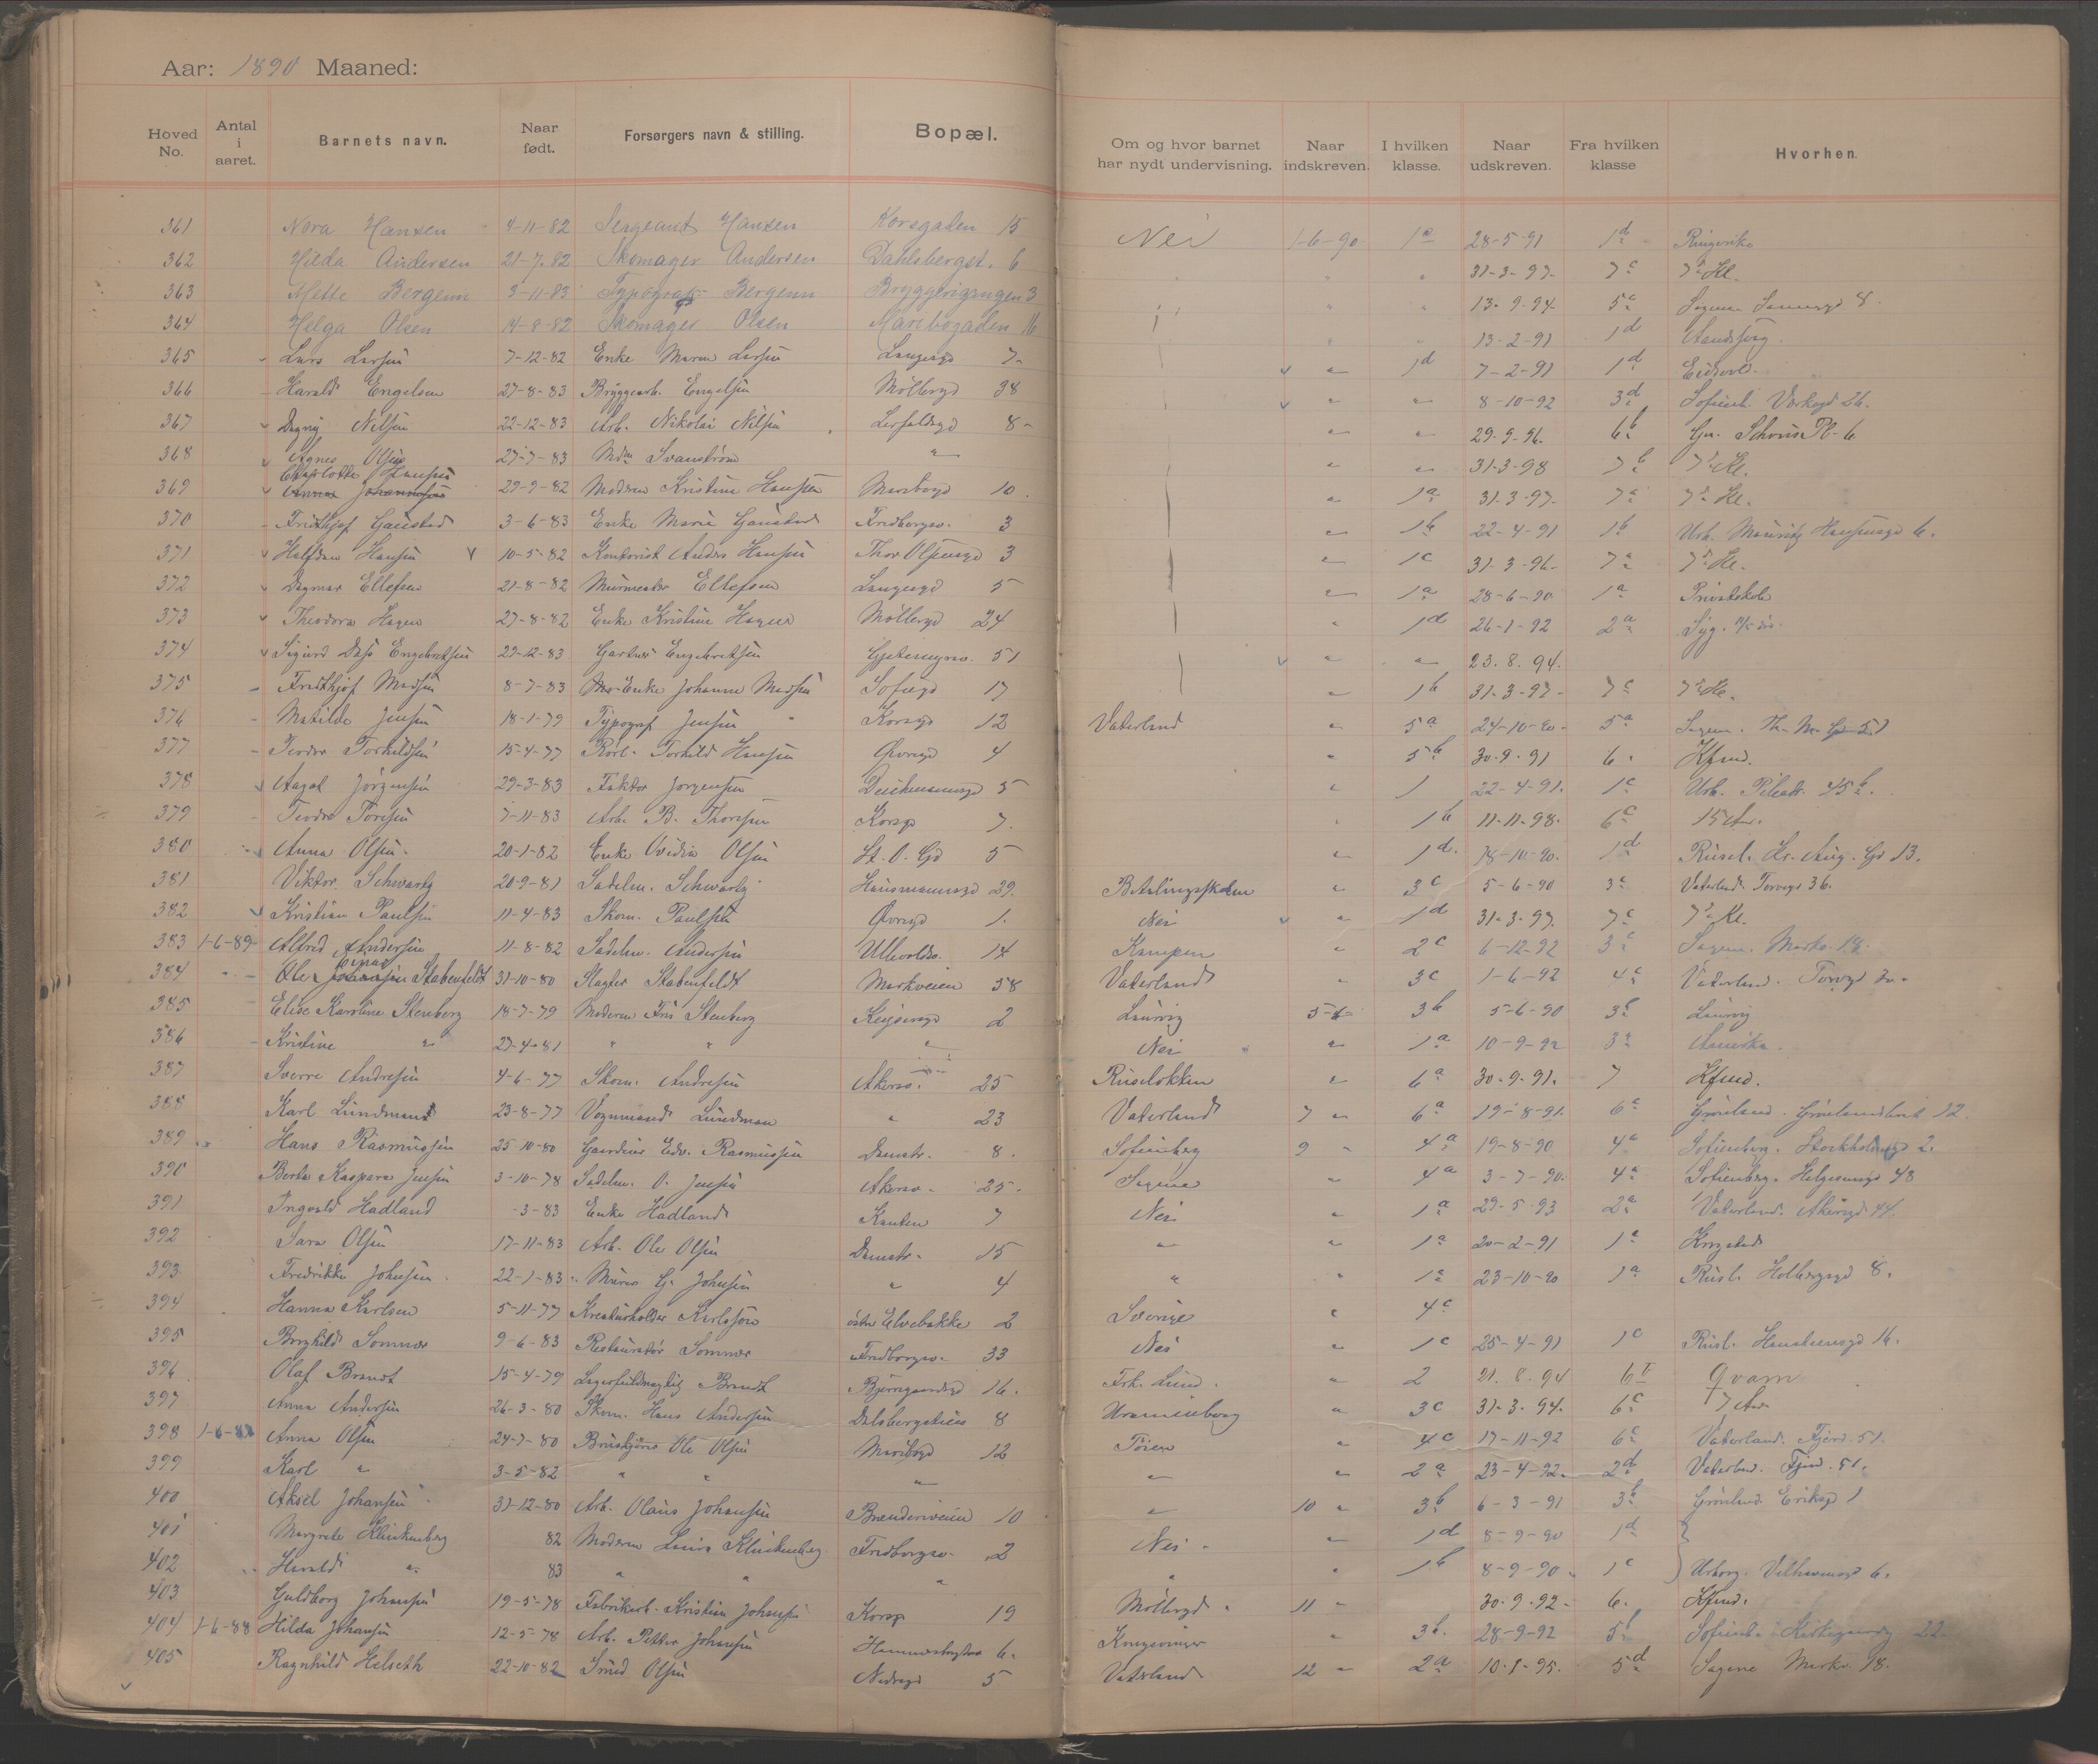 Aar: 1890 Maaned:
Hoved No. Antal i aaret. Barnets navn. Naar født. Forsørgers navn & stilling. Bopæl. Om og hvor barnet har nydt undervisning. Naar indskreven. I hvilken klasse. Naar udskreven. Fra hvilken klasse Hvorhen.
361 Nora Hansen 4-11-82 Sergeant Hansen Korsgaden 15 Nei 1-6-90 1a 28-5-91 1d Ringerike
362 Hilda Andersen 21-7-82 Skomager Andersen Dahlsbergst. 6 " " 31-3-97 7c 7de Kl.
363 Mette Bergenn 3-11-83 Typograf Bergenn Bryggerigangen 3 " " 13-9-94 5c Sagene 8
364 Helga Olsen 14-8-82 Skomager Olsen Maribogaden 16 " " 13-2-91 1d
365 Lars Larsen 7-12-82 Enke Maren Larsen Langesgd 7 " 1d 7-2-91 1d Eidsvold
366 Harald Engelsen 27-8-83 Bryggearb. Engelsen Møllergd 38 " " 8-10-92 3d Sofienb. Verksgd 26.
367 Dagny Nilsen 22-12-83 Arb. Nikolai Nilsen Lerfaldsgd 8 " " 29-9-96 6b Gr. Schous Pl. 6
368 Agnes Olsen 27-7-83 Mdm Svanstrøm " " " 31-3-98 7b 7de Kl.
369 Charlotte Hansen 29-9-82 Moderen Kristine Hansen Maribogd 10 " 1a 31-3-97 7a 7de Kl.
370 Fridthjof Gaustad 3-6-83 Enke Marie Gaustad Fredborgsv. 3 " 1b 22-4-91 1b Urb. Mauritz Hansensgd 6.
371 Halfdan Hansen 10-5-82 Kontorist Anders Hansen Thor Olsensgd 3 " 1c 31-3-96 7a 7de Kl.
372 Dagmar Ellefsen 21-8-82 Murmester Ellefsen Langesgd 5 " 1a 28-6-90 1a Privatskole
373 Theodora Hagen 27-8-82 Enke Kristine Hagen Møllergd 24 " 1d 26-1-92 2a Syg.
374 Sigurd Engebretsen 29-12-83 Gartner Engebretsen Gjetemyrsv. 51 " " 23.8.94.
375 Fridthjof Madsen 8-7-83 Enke Johanne Madsen Sofiegd 17 " 1b 31-3-97 7c 7de Kl.
376 Matilde Jensen 18-1-79 Typograf Jensen Korsgd 12 Vaterland " 5a 24-10-90 5a Sagene. Th. M. Gd 51
377 Teodor Torkildsen 15-4-77 Rørl. Torkild Hansen Øvregd 4 " 5b 30-9-91 6. Kfmd.
378 Aagot Jørgensen 29-3-83 Faktor Jørgensen Deichmannsgd 5 " 1 22-4-91 1c Urb. Pilestr. 45b.
379 Teodor Toresen 7-11-83 Arb. B. Thoresen Korsg. 7. " 1b 11-11-98 6c 15 Aar.
380 Anna Olsen 20-1-82 Enke Ovidia Olsen St. O. Gd 5 " 1d 18-10-90 1d Rusel. Kr. Aug. Gd 13.
381 Viktor Schwartz 20-9-81 Sadelm. Schwartz Hausmannsgd 29. Betalingsskolen " 3c 5-6-90 3c Vaterland. Torvgd 36.
382 Kristian Paulsen 11-4-83 Skom. Paulsen Øvregd 1. Nei " 1d 31-3-97 7c 7de Kl.
383 1-6-89 Alfred Andersen 11-8-82 Sadelm. Andersen Ullevoldsv. 14 Kampen " 2c 6-12-92 3c Sagene. Markv. 18.
384 Ole Einar Stabenfeldt 31-10-80 Slagter Stabenfeldt Markveien 58 Vaterland " 3c 1-6-92 4c Vaterland. Torvgd
385 Elise Karoline Stenberg 18-7-79 Moderen Fru Stenberg Keysersgd 2 Laurvig 5-6 3b 5-6-90 3b Laurvig
386 Kristine " 27-4-81 " " " Nei " 1a 10-9-92 3a Amerika.
387 Sverre Andresen 4-6-77 Skom. Andresen Akersv. 25 Ruseløkken " 6a 30-9-91 7 Kfmd.
388 Karl Lundmann 23-8-77 Vognmand Lundman " 23 Vaterland 7 " 6a 19-8-91 6c Grønland. Grønlandsleret 12.
389 Hans Rasmussen 25-10-80 Edv. Rasmussen Damstr. 8. Sofienberg 9 " 4a 19-8-90 4a Sofienberg. Stockholmsgd 2.
390 Berta Kaspara Jensen 3-10-78 Sadelm. O. Jensen Akersv. 25. Sagene " 4a 3-7-90 4a Sofienberg. Helgesensgd 48
391 Ingvald Hadland -3-83 Enke Hadland Kanten 7 Nei " 1a 29-5-93 2a Vaterland. Akersgd 44.
392 Sara Olsen 17-11-83 Arb. Ole Olsen Damstr. 15 " " 1a 20-2-91 1a
393 Fredrikke Johnsen 22-1-83 Murer G. Johnsen " 4 " " 1a 23-10-90 1a Rusl. Holbergsgd 8.
394 Hanna Karlsen 5-11-77 Kreaturholder Karlsson østre Elvebakke 2 Sverige " 4c
395 Borghild Sommer 9-6-83 Restauratør Sommer Fredborgsv. 33 Nei " 1c 25-4-91 1c Rusl. Hansteensgd 16.
396 Olaf Brandt 15-4-79 Lagerfuldmægtig Brandt Bjerregaardsgd 16. Frk. Lund. " 2 21.8.94 6 Qvam
397 Anna Andersen 26-3-80 Skom. Hans Andersen Dalsbergstien 8 Uranienborg " 3c 31-3-94. 6c 7 Aar
398 Anna Olsen 24-7-80 Ole Olsen Maribogd 12 Tøien " 4c 17-11-92 6c Vaterland. Fjerd. 51.
399 Karl " 3-5-82 " " " " " 2a 23-4-92 2d Vaterland. Fjerd. 51.
400 Aksel Johansen 31-12-80 Arb. Olaus Johansen Brenneriveien 10 " 10 " 3b 6-3-91 3b Grønland Eriksgd 1
401 Margrete Klinkenberg 82 Moderen Laura Klinkenberg Fredborgsv. 2 Nei " 1d 8-9-90 1d
402 Harald " 83 " " " " " 1b 8-9-90 1c Uranienborg. Vilhelmsgd 6.
403 Guldborg Johansen 19-5-78 Fabrikarb. Kristian Johansen Korsg. 19 Møllergd. 11 " 30.9.92 6. Kfmd.
404 1-6-88 Hilda Johansen 12-5-78 Arb. Petter Johansen Hammersborgtorv 6. Kongsvinger " 3b. 28-9-92 5b Sofienb. Kirkegaardsg 22
405 Ragnhild Helseth 22-10-82 Smed Olsen Nedregd 5 Vaterland 12 " 2a 10-1-95. 5d Sagene Markv. 18.